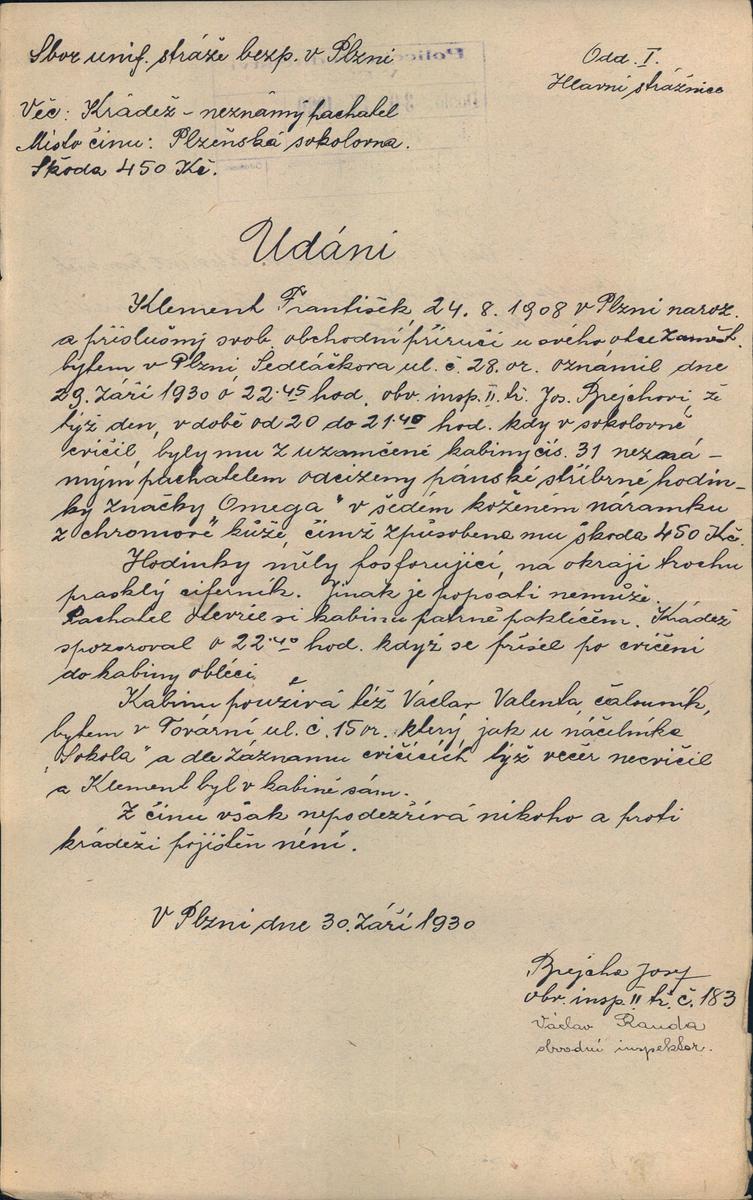 Sbor unif. stráže bezp. v Plzni
Odd. I.
Hlavní strážnice
Věc: Krádež - neznámý pachatel
Místo činu: Plzeňská sokolovna.
Škoda 450 Kč.
Udání
Klement František, 24. 8. 1908 v Plzni naroz.
a příslušný svob. obchodní příručí u svého otce zaměst.
bytem v Plzni Sedláčkova ul. č. 28. or. oznámil dne
29. září 1930 o 22.45 hod. obv. insp. II. tř. Jos. Brejchovi, že
týž den, v době od 20 do 21.40 hod. kdy v sokolovně
cvičil, byly mu z uzamčené kabiny čís. 31 nezná-
mým pachatelem odcizeny pánské stříbrné hodin-
ky značky Omega" v šedém koženém náramku
z chromové" kůže, čímž způsobena mu škoda 450 Kč.
Hodinky měly fosforující, na okraji trochu
prasklý ciferník. Jinak je popsati nemůže.
Pachatel otevřel si kabinu patrně paklíčem. Krádež
spozoroval o 22.40 hod. když se přišel po cvičení
do kabiny obléci.
Kabinu používá též Václav Valenta, čalouník,
bytem v Tovární ul. č. 15 or. který, jak u náčelníka
"Sokola" a dle záznamu cvičících týž večer necvičil
a Klement byl v kabině sám.
Z činu však nepodezřívá nikoho a proti
krádeži pojištěn není.
V Plzni dne 30. září 1930
Brejcha Josef
obv. insp. II tř. č. 183
Václav Randa
obvodní inspektor.